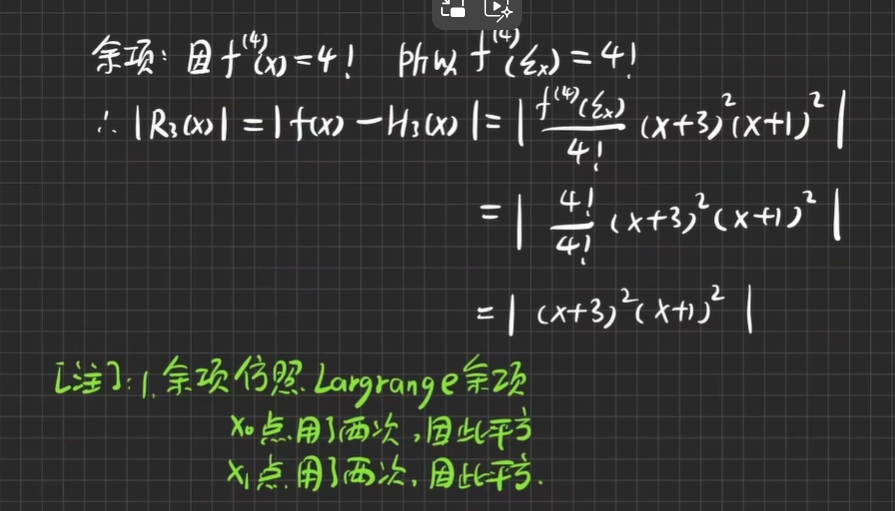 余项: 因 f⁽⁴⁾(x)=4! 所以 f⁽⁴⁾(ξₓ)=4!
∴ |R₃(x)| = |f(x) − H₃(x)| = | f⁽⁴⁾(ξₓ)/4! (x+3)²(x+1)² |
= | 4!/4! (x+3)²(x+1)² |
= | (x+3)²(x+1)² |
[注]: 1. 余项仿照 Largrange余项
x₀点用了两次,因此平方
x₁点用了两次,因此平方.